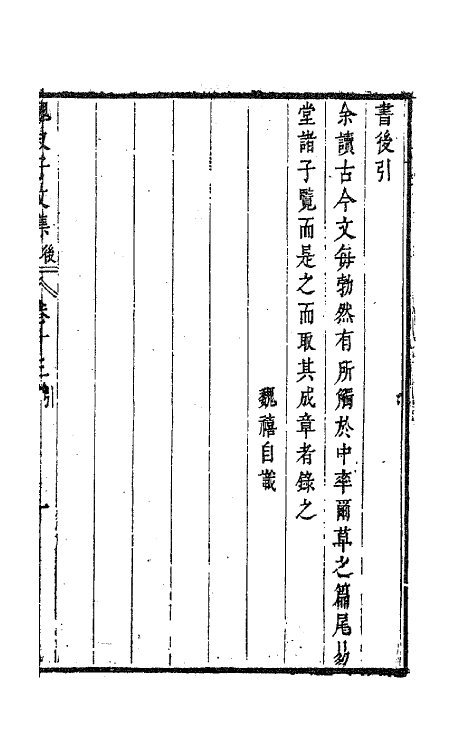 書後引
余讀古今文每勃然有所觸於中率爾草之篇尾易
堂諸子覽而是之而取其成章者錄之
魏禧自識
魏叔子文集後 卷十三引 一